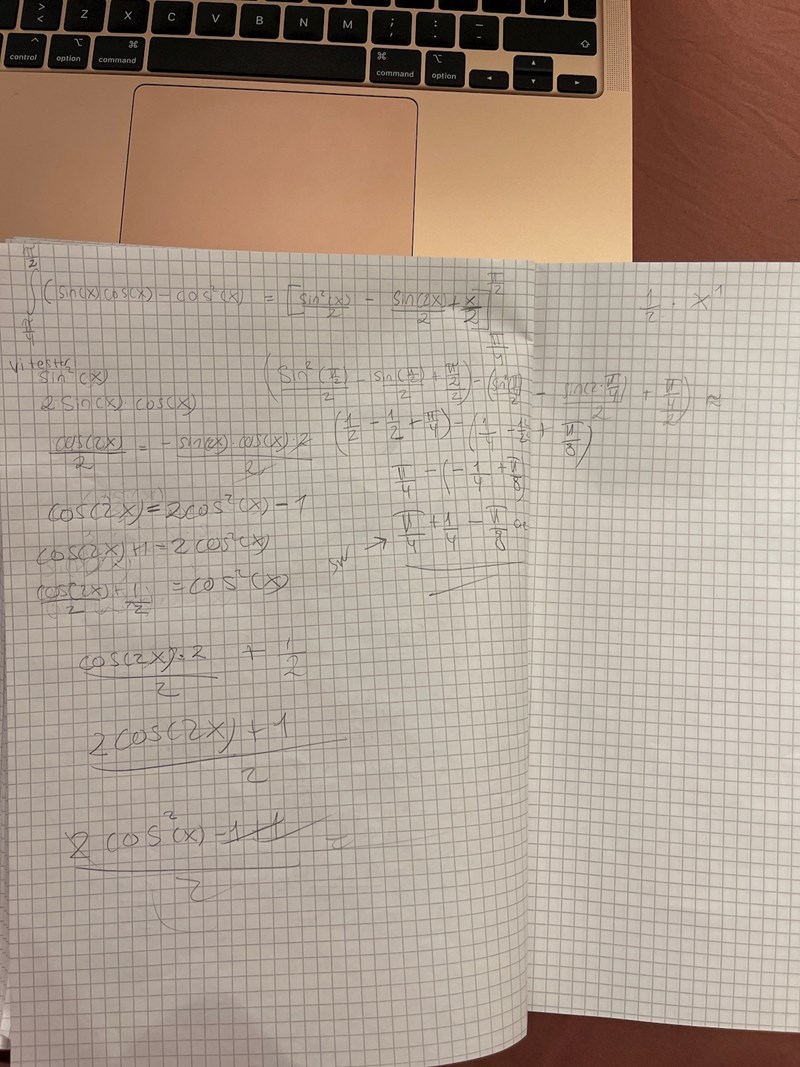 > <
Z X C V B N M ; , : . _ -
control option command command option
∫ π/2 π/4 (sin(x)cos(x) - cos²(x)) = [sin²(x)/2 - sin(2x)/2 + x/2] π/2 π/4
1/2 · x¹
sin²(x)
2 sin(x) · cos(x)
cos(2x)/2 = - sin(2x) · cos(x) · 2/2
cos(2x) = 2cos²(x) - 1
cos(2x) + 1 = 2cos²(x)
cos(2x)/2 + 1/2 = cos²(x)
cos(2x) · 2/2 + 1/2
2cos(2x) + 1/2
2 cos²(x) - 1 + 1/2
(sin²(π/2)/2 - sin(π/2)/2 + π/2/2) - (sin²(π/4)/2 - sin(2·π/4)/2 + π/4/2) ≈
(1/2 - 1/2 + π/4) - (1/4 - 1/2 + π/8)
π/4 - (-1/4 + π/8)
sv → π/4 + 1/4 - π/8